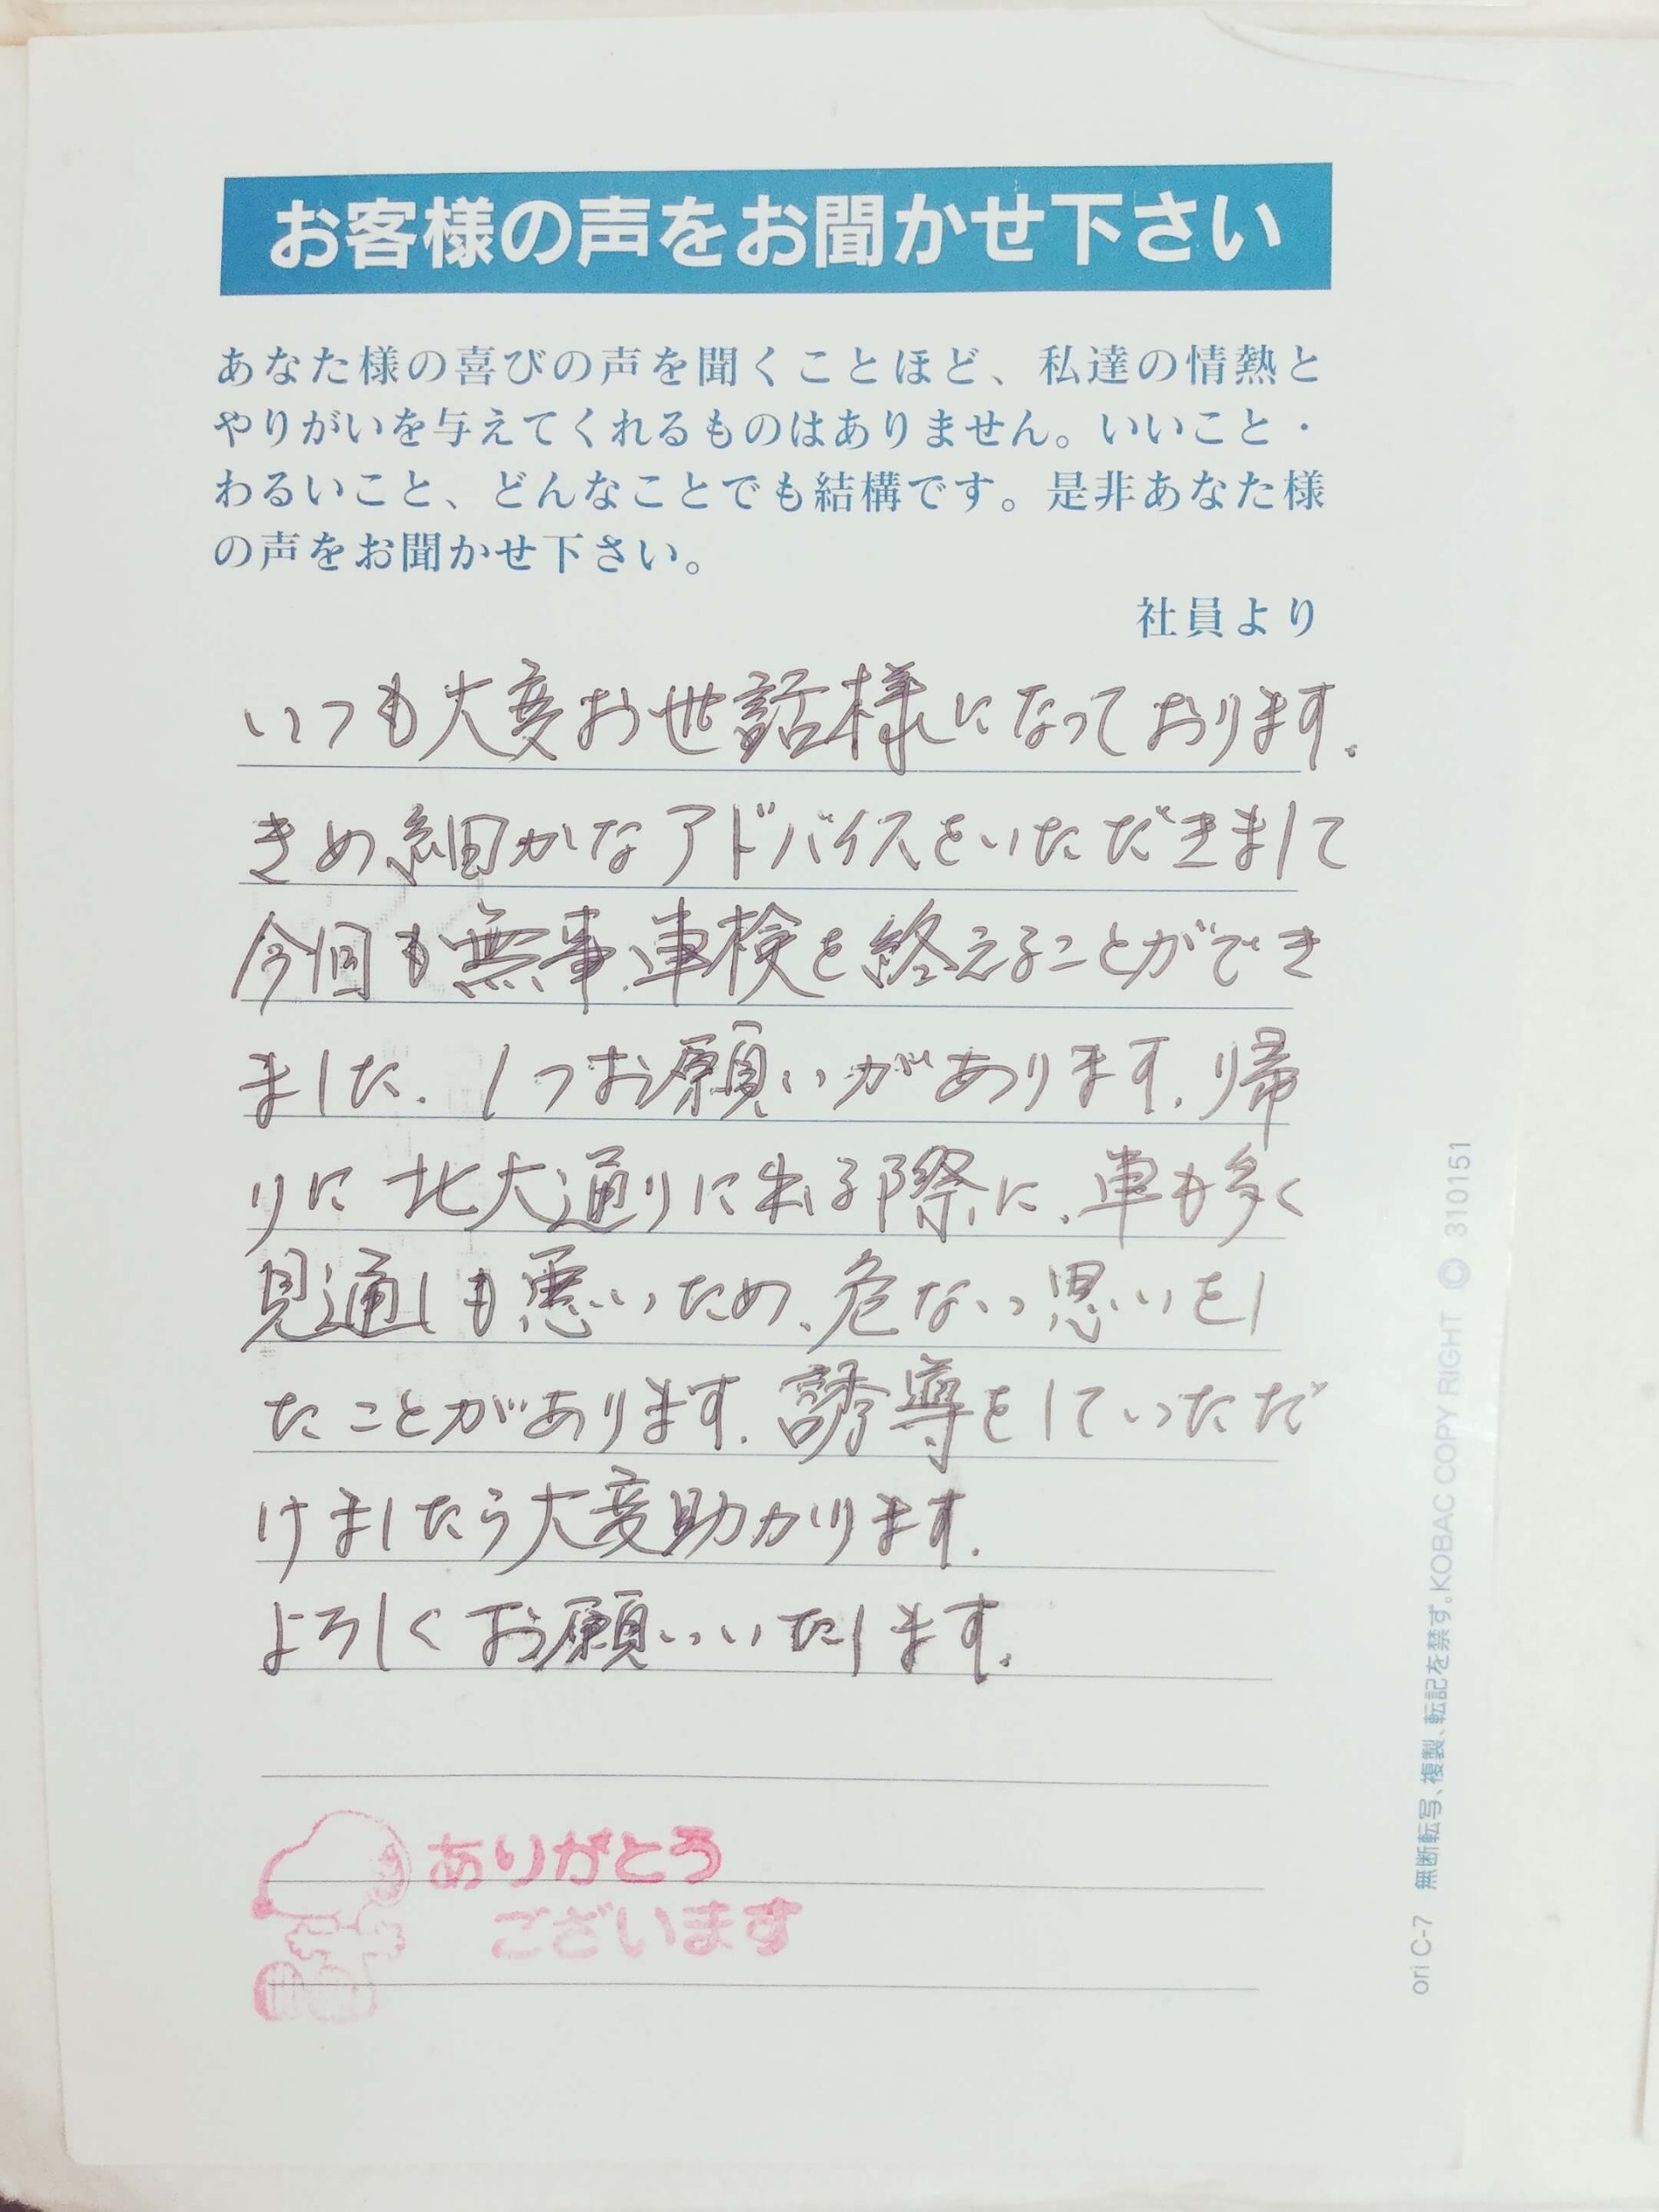 お客様の声をお聞かせ下さい
あなた様の喜びの声を聞くことほど、私達の情熱と
やりがいを与えてくれるものはありません。いいこと・
わるいこと、どんなことでも結構です。是非あなた様
の声をお聞かせ下さい。
社員より
いつも大変お世話様になっております。
きめ細かなアドバイスをいただきまして
今回も無事、車検を終えることができ
ました。1つお願いがあります。帰
りに北大通りに出る際に、車も多く
見通しも悪いため、危ない思いをし
たことがあります。誘導をしていただ
けましたら大変助かります。
よろしくお願いいたします。
ありがとう
ございます
ori C-7 無断転写、複製、転記を禁ず。KOBAC COPY RIGHT © 310151